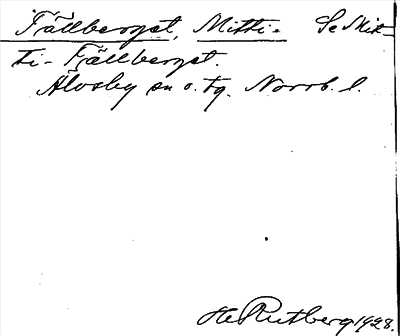 Fällberget, Mitti- Se Mit-
ti-Fällberget.
Älvsby sn o. tg. Norrb. l.
H Rutberg 1928.